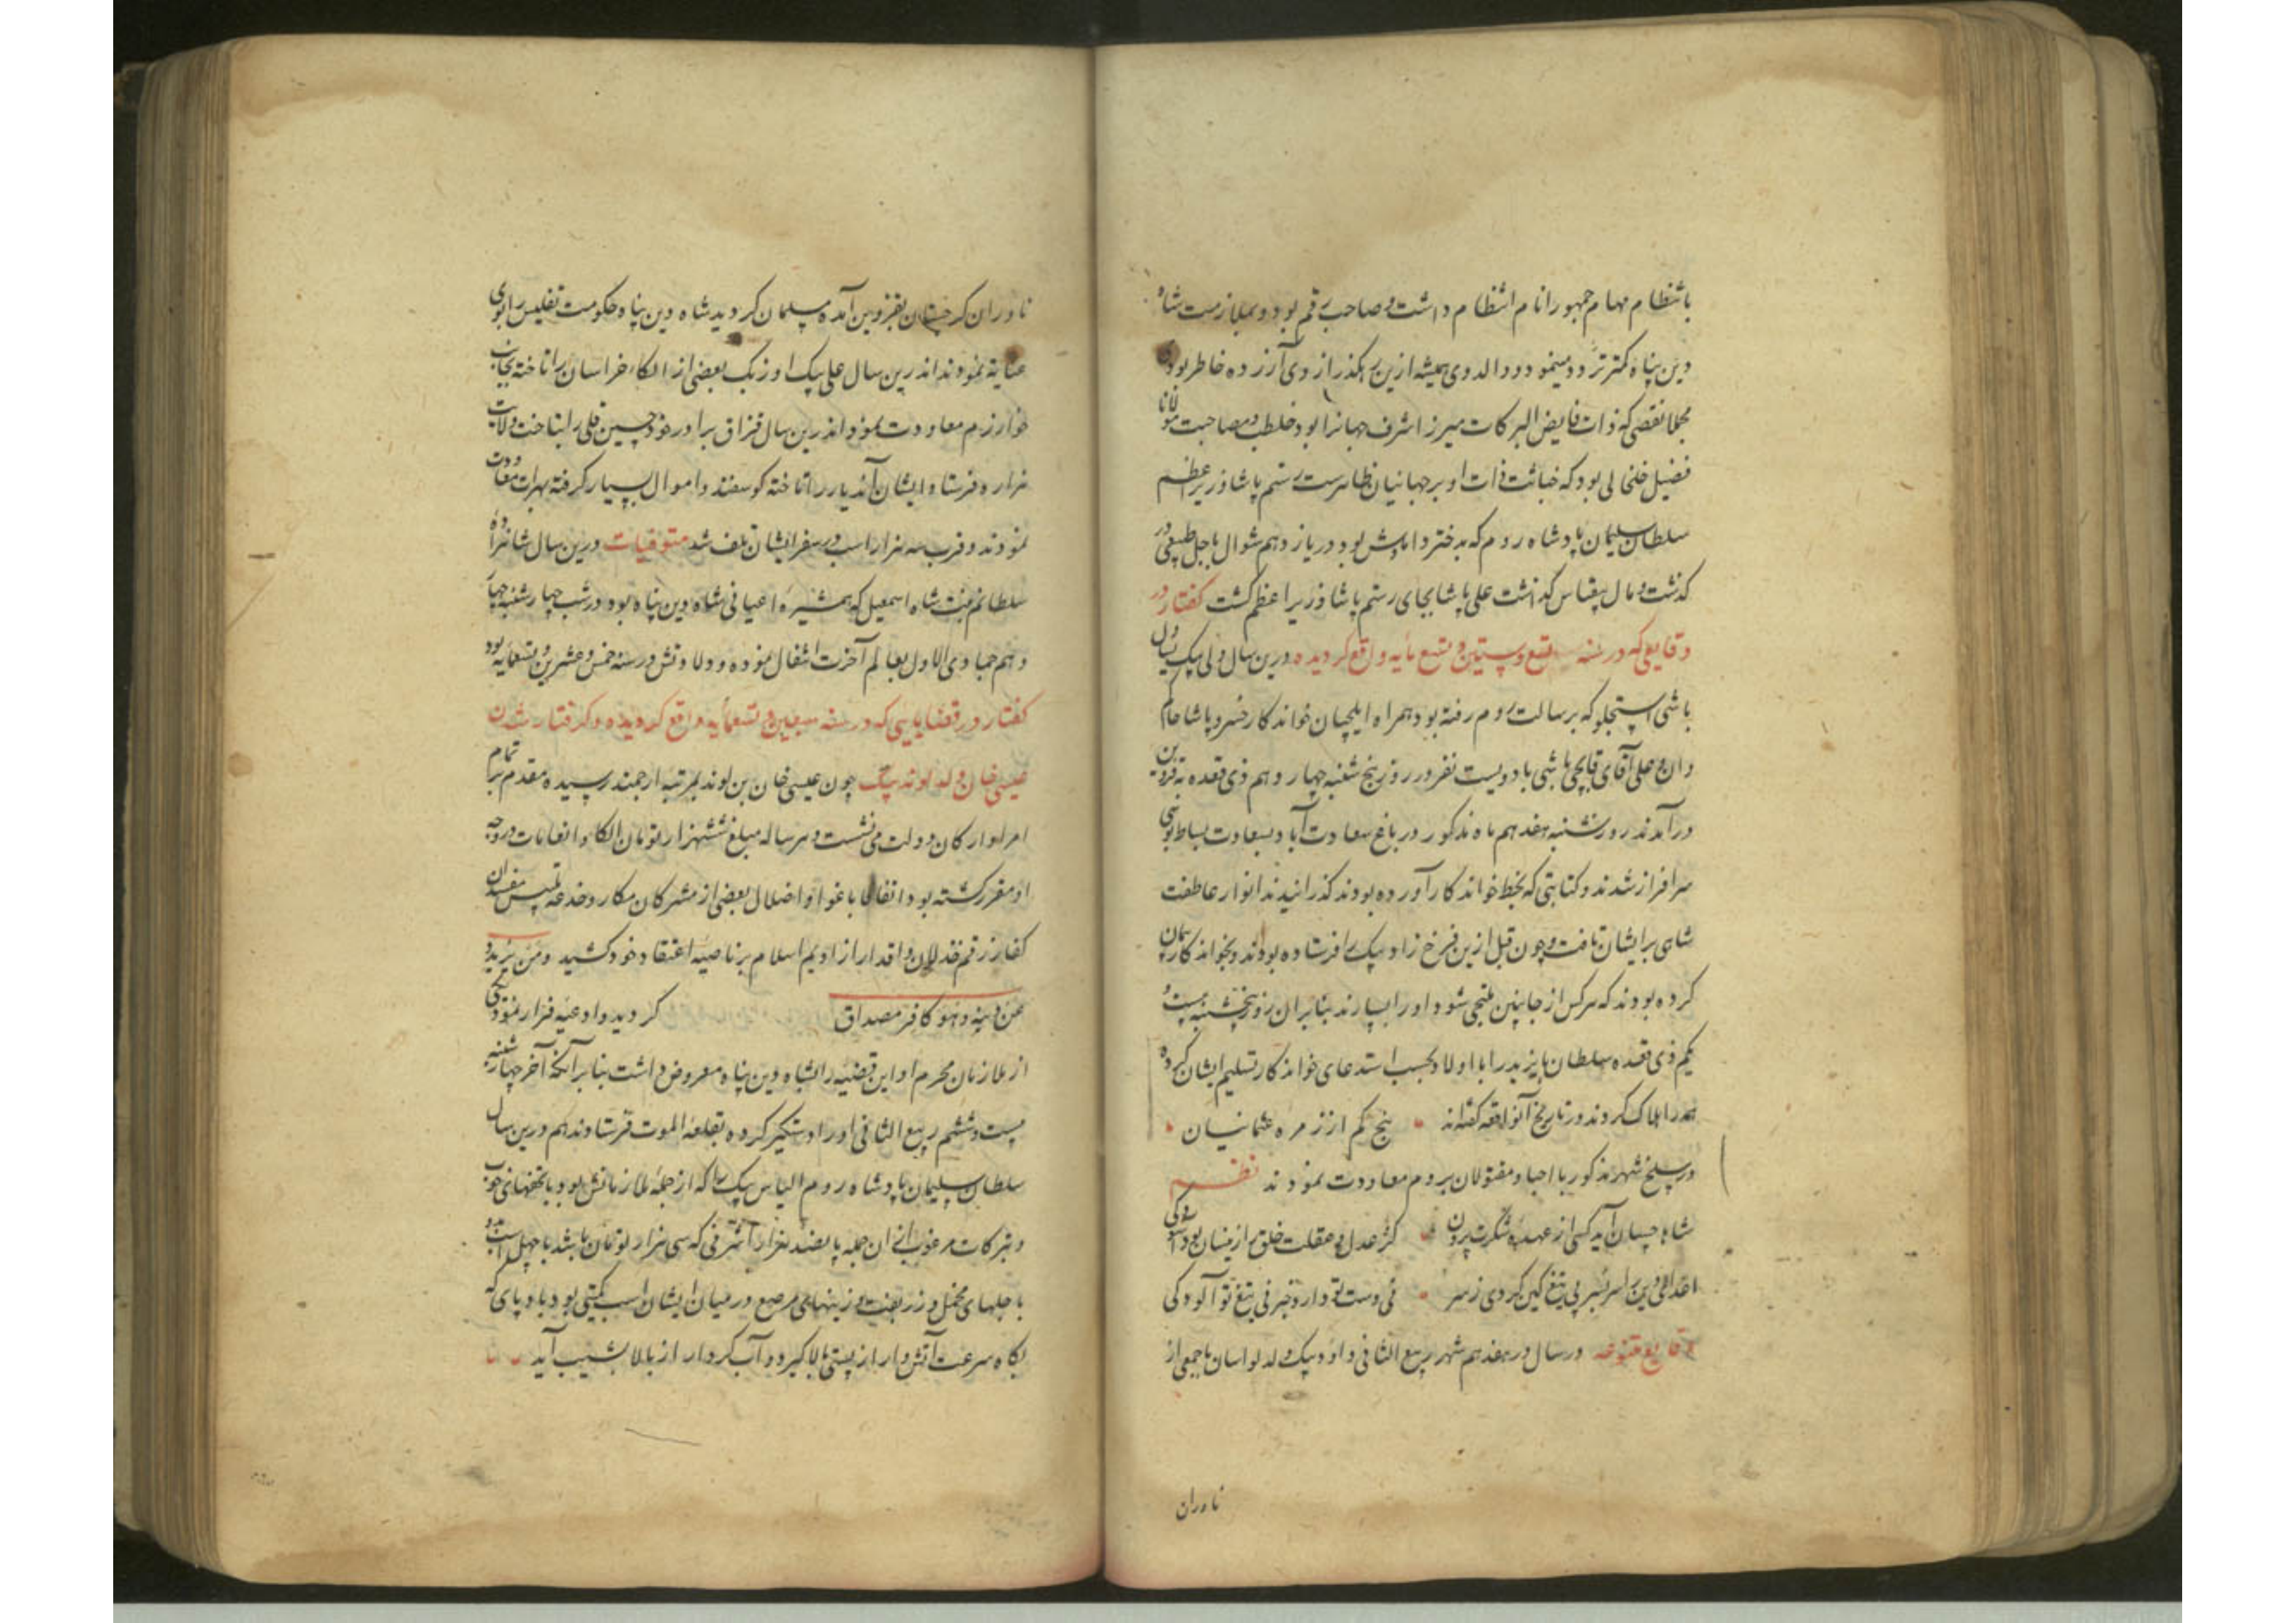 بانتظام مهام جمهور انام انتظام داشت و صاحب رقم بود و بملازمت شاه
دین پناه کمتر تردد مینمود و والد وی همیشه ازین رهکذر از وی آزرده خاطر بودی
مجملا نقصی که ذات فایض البرکات میرزا شرف جهانرا بود خلطه و مصاحبت مولانا
فضیل خلخالی بود که خباثت ذات او بر جهانیان ظاهرست رستم پاشا وزیر اعظم
سلطان سلیمان پادشاه روم که بدختر دامادش بود در یازدهم شوال باجل طبیعی در
کذشت و مال بیقیاس کذاشت علی پاشا بجای رستم پاشا وزیر اعظم کشت کفتار در
وقایعی که در سنه تسع و ستین و تسع مایه واقع کردیده درین سال ولی بیک یساول
باشی استجلو که برسالت روم رفته بود همراه ایلچیان خواندکار خسرو پاشا حاکم
وان و علی آقای قاپچی باشی با دویست نفر در روز پنج شنبه چهاردهم ذی قعده بقزوین
درآمدند روز شنبه هفدهم ماه مذکور در باغ سعادت آباد بسعادت بساط بوسی
سرافراز شدند و کتابتی که بخط خواندکار آورده بودند کذرانیدند انوار عاطفت
شاهی بر ایشان تافت و چون قبل ازین فرخ زاد بیک را فرستاده بودند و بخواندکار پیمان
کرده بودند که هر کس از جانبین ملتجی شود او را بسپارند بنابران روز پنجشنبه بیست و
یکم ذی قعده سلطان بایزید را با اولاد بحسب استدعای خواندکار تسلیم ایشان کرده
همه را هلاک کردند و در تاریخ آنواقعه کفته‌اند پنج کم از زمره عثمانیان
در سلخ شهر مذکور با احیا و مقتولان بروم معاودت نمودند نظم
شاها چسان آید کسی از عهده شکرت برون کز عدل و عقلت خلق را زینسان بود آسودکی
اعدای دین را سر بسر بی تیغ کین کردی ز سر نی دست تو دارد خبر نی تیغ تو آلودکی
وقایع متنوعه در سال در هفدهم شهر ربیع الثانی داود بیک ولد لواسان با جمعی از
ناوران
ناوران کرجستان بقزوین آمده مسلمان کردید شاه دین پناه حکومت تفلیس را بوی
عنایة نمودند اندرین سال علی بیک اوزبک بعضی از الکاء خراسان را تاخته بجانب
خوارزم معاودت نمود اندرین سال قزاق برادر خود حسین قلی را بتاخت ولایت
هزاره فرستاد ایشان آندیار را تاخته کوسفند و اموال بسیار کرفته بهرات معاودت
نمودند و قرب سه هزار اسب در سفر ایشان تلف شد متوفیات درین سال شاهزاده
سلطانم بنت شاه اسمعیل که همشیره اعیانی شاه دین پناه بود در شب چهارشنبه چهار
دهم جمادی الاول بعالم آخرت انتقال نموده و ولادتش در سنه خمس و عشرین و تسعمایه بود
کفتار در قضایایی که در سنه سبعین و تسعمأیه واقع کردیده و کرفتار شدن
عیسی خان ولد لوند بیک چون عیسی خان بن لوند بمرتبه ارجمند رسیده مقدم بر تمام
امرا و ارکان دولت می نشست و هر ساله مبلغ ششهزار تومان الکا و انعامات در وجه
او مقرر کشته بود اتفاقا باغوا و اضلال بعضی از مشرکان مکار و خدعه تلبیس مفسدان
کفار رقم خذلان و اقدار از ادیم اسلام بر ناصیه اعتقاد خود کشید و من یرتدد
عن دینه و هو کافر مصداق کردید و ادعیه فرار نمود یکی
از ملازمان محرم او این قضیه را بشاه دین پناه معروض داشت بنا بر آنکه آخر چهارشنبه
بیست و ششم ربیع الثانی او را دستکیر کرده بقلعه الموت فرستادند هم درین سال
سلطان سلیمان پادشاه روم الیاس بیک را که از جمله ملازمانش بود با تحفهای خوب
و تبرکات مرغوب از آن جمله پانصد هزار اشرفی که سی هزار تومان باشد با چهل اسب
با جلهای مخمل و زربفت و زینهای مرصع در میان ایشان اسب کمیتی بود بادپای که
بکاه سرعت آتش وار از پستی بالا کیرد و آب کردار از بالا بشیب آید